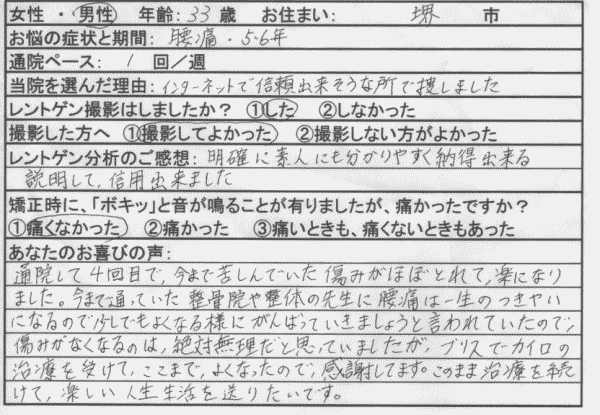 女性 ・ 男性 年齢:33 歳 お住まい: 堺 市
お悩の症状と期間: 腰痛・5.6年
通院ペース: 1 回/週
当院を選んだ理由:インターネットで信頼出来そうな所で捜しました
レントゲン撮影はしましたか? ①した ②しなかった
撮影した方へ ①撮影してよかった ②撮影しない方がよかった
レントゲン分析のご感想: 明確に素人にも分かりやすく納得出来る
説明して、信用出来ました
矯正時に、「ボキッ」と音が鳴ることが有りましたが、痛かったですか?
①痛くなかった ②痛かった ③痛いときも、痛くないときもあった
あなたのお喜びの声:
通院して4回目で、今まで苦しんでいた傷みがほぼとれて、楽になり
ました。今まで通っていた整骨院や整体の先生に腰痛は一生のつきやい
になるので少しでもよくなる様にがんばっていきましょうと言われていたので、
傷みがなくなるのは、絶対無理だと思っていましたが、ブリスでカイロの
治療を受けて、ここまで、よくなったので、感謝してます。このまま治療を続
けて、楽しい人生生活を送りたいです。